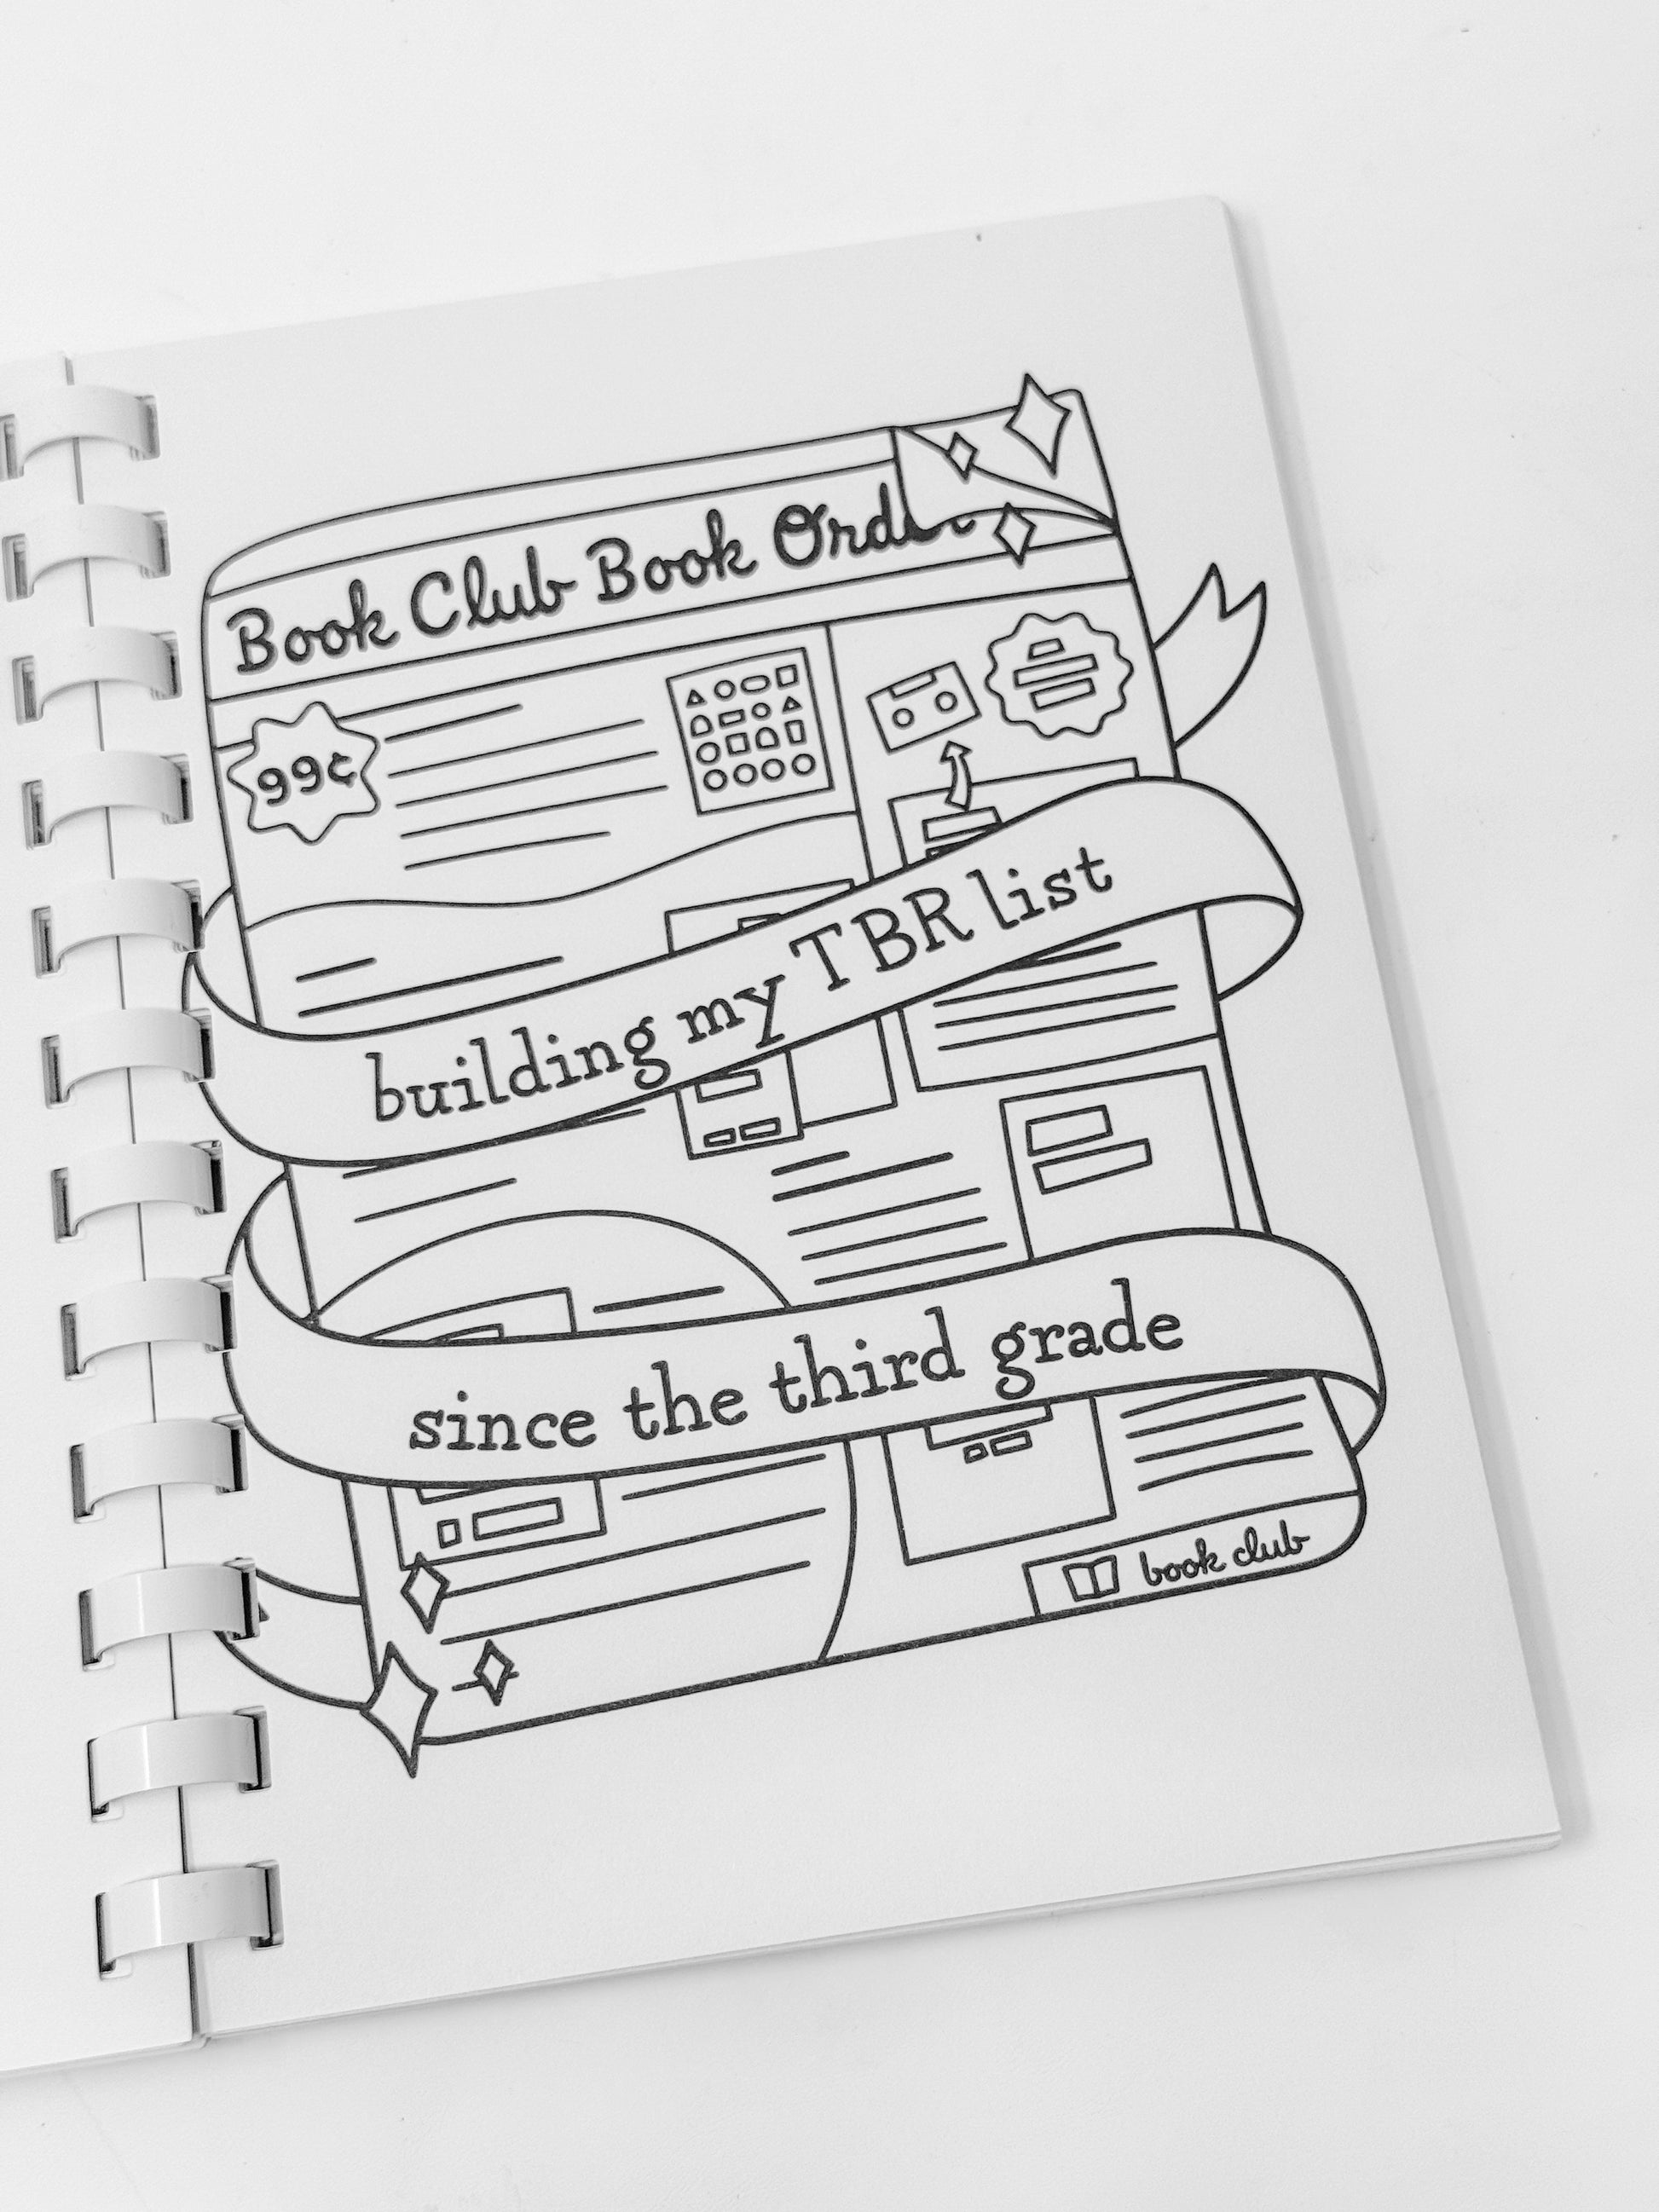 Book Club Book Order
99¢
building my TBR list
since the third grade
book club